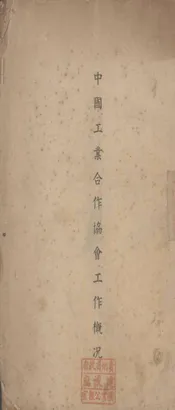 中國工業合作協會工作概況